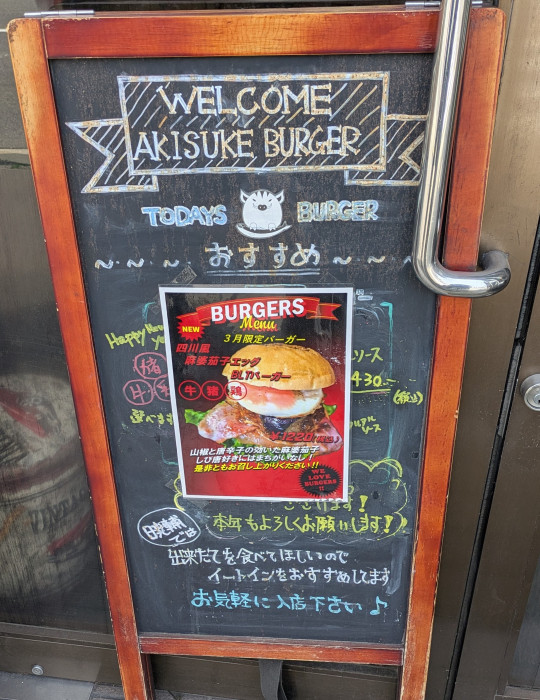 WELCOME
AKISUKE BURGER
TODAYS BURGER
おすすめ
BURGERS
Menu
NEW
3月限定バーガー
四川風
麻婆茄子エッグ
BLTバーガー
牛 猪 鶏
¥1220(税込)
山椒と唐辛子の効いた麻婆茄子
しび唐好きにはまちがいなし!
是非ともお召し上がりください!!
WE
LOVE
BURGERS
Happy New
猪
牛
選べます
ソース
430
(税込)
ソース
本年もよろしくお願いします!
では
出来たてを食べてほしいので
イートインをおすすめしてます
お気軽に入店下さい♪